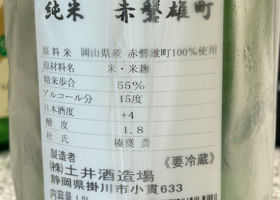 純米 赤磐雄町
原料米 岡山県産 赤磐雄町100%使用
原材料名 米・米麹
精米歩合 55%
アルコール分 15度
日本酒度 +4
酸度 1.8
杜氏 榛葉 農
《要冷蔵》
製造者
㈱土井酒造場
静岡県掛川市小貫633